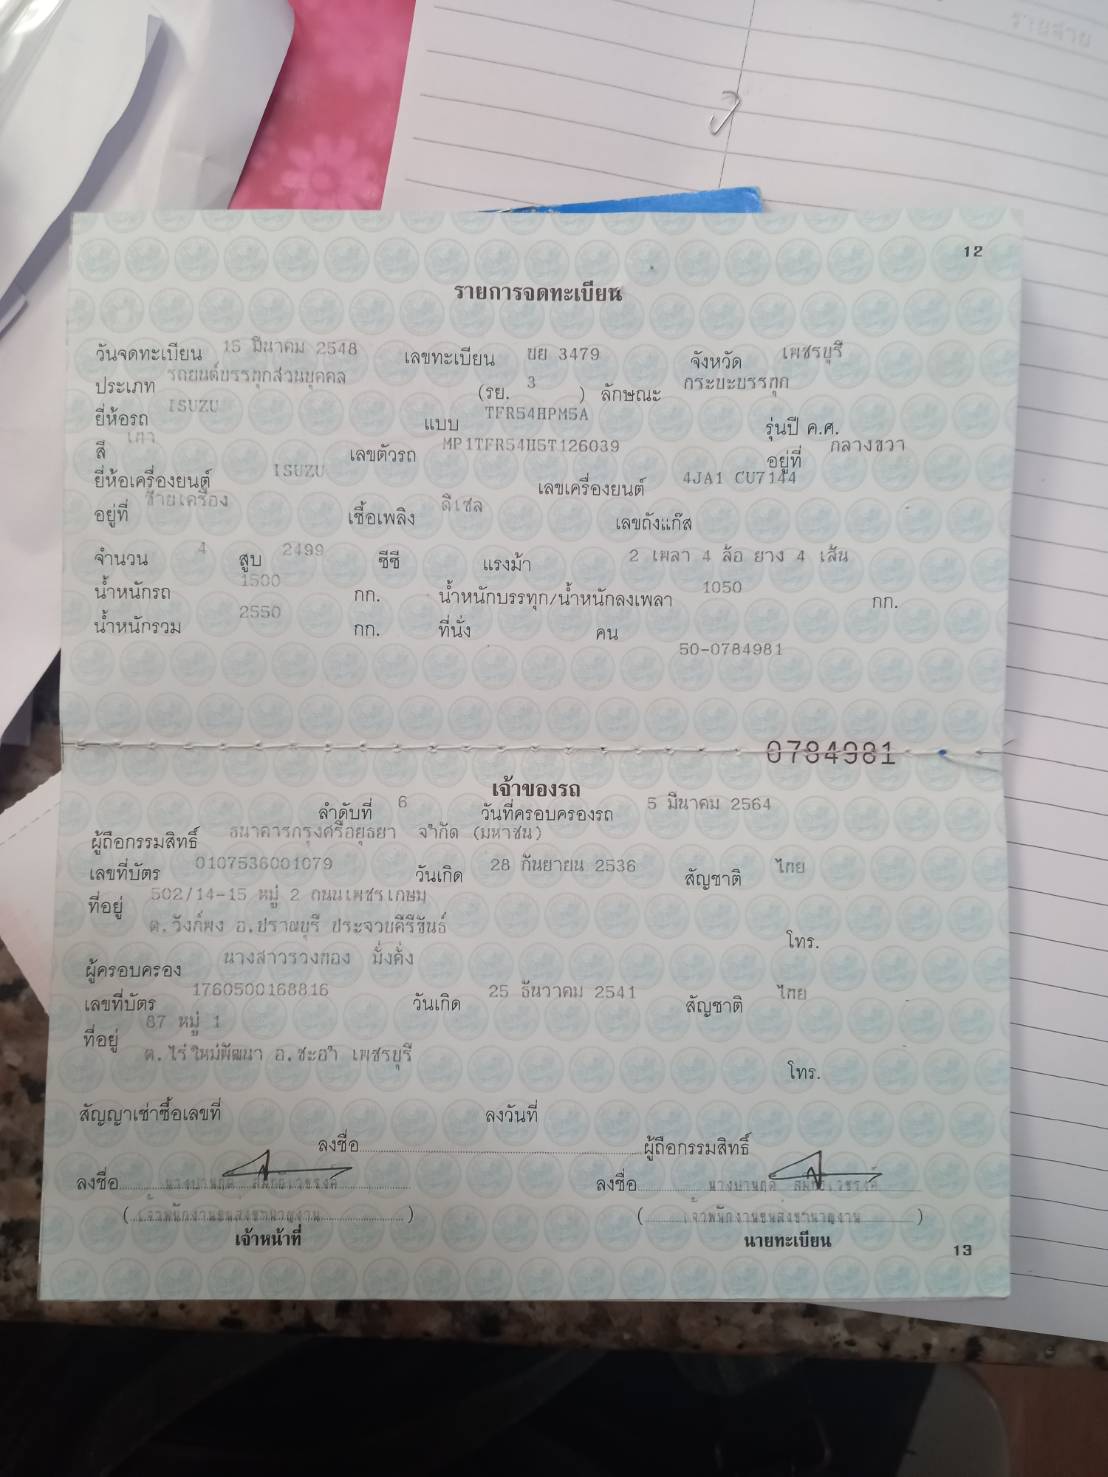 รายส่วย
12
รายการจดทะเบียน
วันจดทะเบียน 15 มีนาคม 2548 เลขทะเบียน บย 3479 จังหวัด เพชรบุรี
ประเภท รถยนต์บรรทุกส่วนบุคคล (รย. 3 ) ลักษณะ กระบะบรรทุก
ยี่ห้อรถ ISUZU แบบ TFR54HPM5A รุ่นปี ค.ศ.
สี เทา เลขตัวรถ MP1TFR54H5T126039 อยู่ที่ กลางขวา
ยี่ห้อเครื่องยนต์ ISUZU เลขเครื่องยนต์ 4JA1 CU7144
อยู่ที่ ซ้ายเครื่อง เชื้อเพลิง ดีเซล เลขถังแก๊ส
จำนวน 4 สูบ 2499 ซีซี แรงม้า 2 เพลา 4 ล้อ ยาง 4 เส้น
น้ำหนักรถ 1500 กก. น้ำหนักบรรทุก/น้ำหนักลงเพลา 1050 กก.
น้ำหนักรวม 2550 กก. ที่นั่ง คน
50-0784981
0784981
เจ้าของรถ
ลำดับที่ 6 วันที่ครอบครองรถ 5 มีนาคม 2564
ผู้ถือกรรมสิทธิ์ ธนาคารกรุงศรีอยุธยา จำกัด (มหาชน)
เลขที่บัตร 0107536001079 วันเกิด 28 กันยายน 2536 สัญชาติ ไทย
ที่อยู่ 502/14-15 หมู่ 2 ถนนเพชรเกษม
ต.วังก์พง อ.ปราณบุรี ประจวบคีรีขันธ์
โทร.
ผู้ครอบครอง นางสาวรวงทอง มั่งคั่ง
เลขที่บัตร 1760500168816 วันเกิด 25 ธันวาคม 2541 สัญชาติ ไทย
ที่อยู่ 87 หมู่ 1
ต.ไร่ใหม่พัฒนา อ.ชะอำ เพชรบุรี
โทร.
สัญญาเช่าซื้อเลขที่ ลงวันที่
ลงชื่อ ผู้ถือกรรมสิทธิ์
ลงชื่อ ลงชื่อ
(เจ้าพนักงานขนส่งชำนาญงาน) (เจ้าพนักงานขนส่งชำนาญงาน)
เจ้าหน้าที่ นายทะเบียน
13